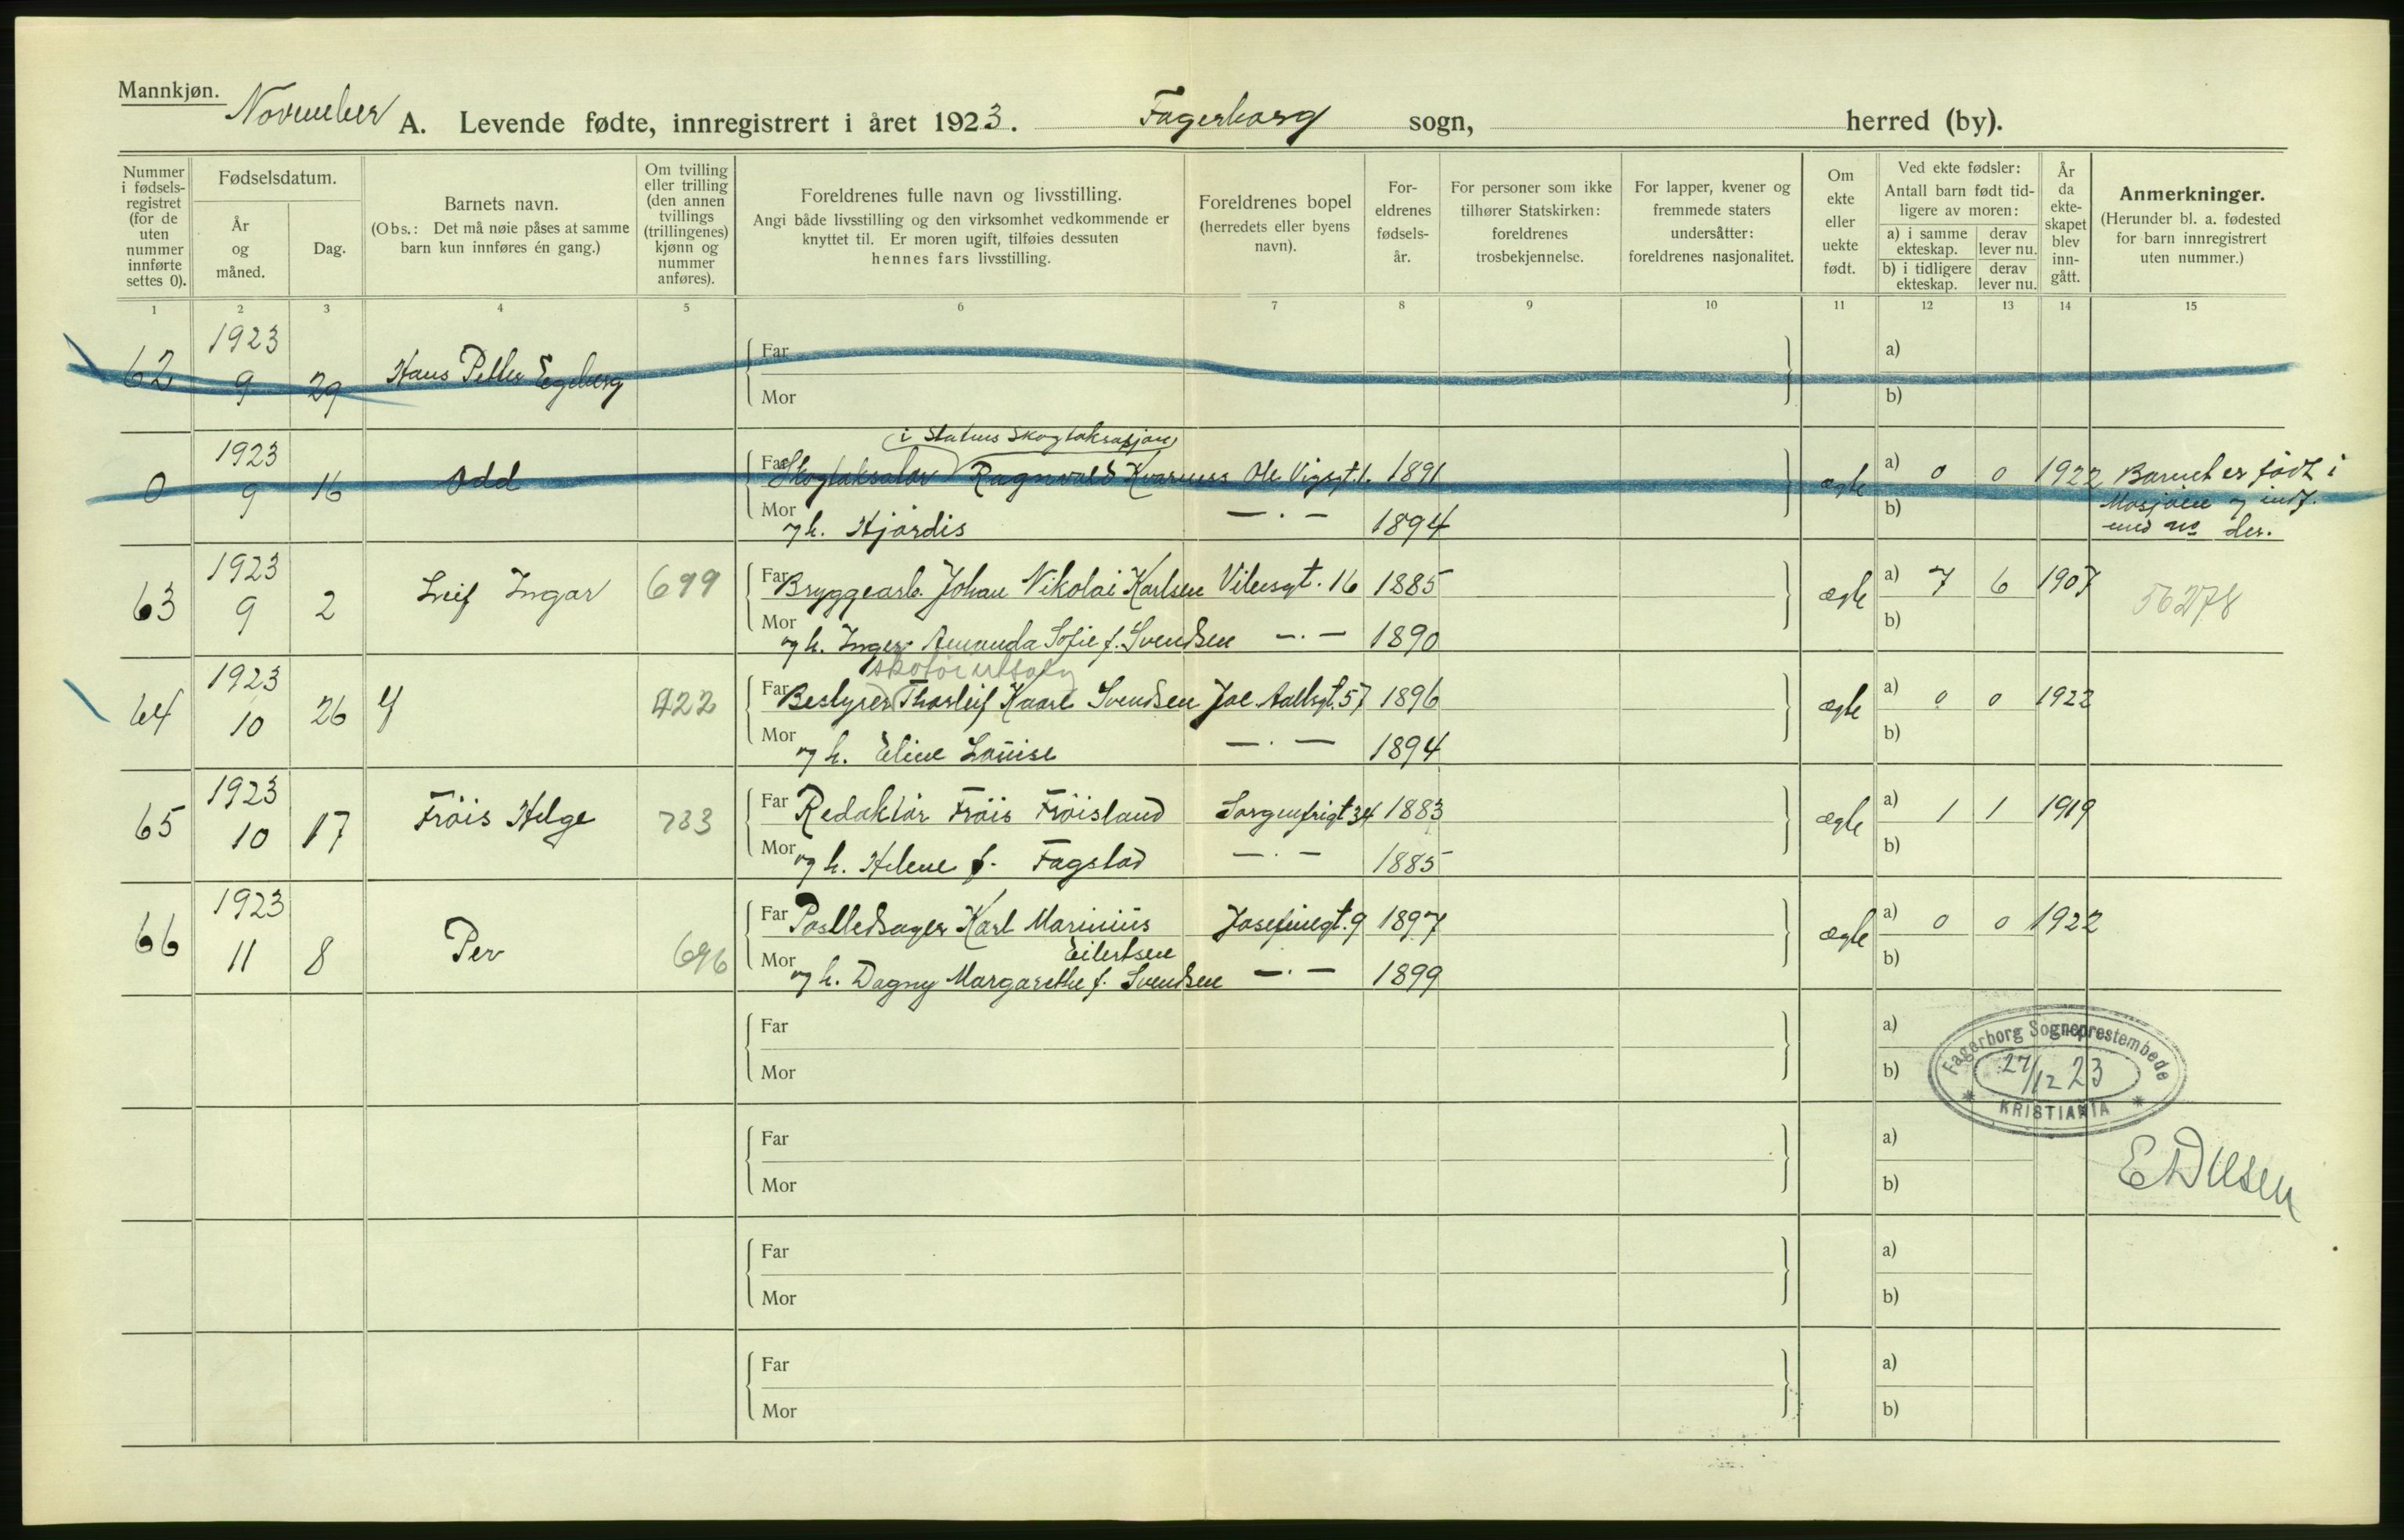 Mannkjøn.
November A. Levende fødte, innregistrert i året 1923. Fagerborg sogn, herred (by).
Nummer i fødsels-registret (for de uten nummer innførte settes 0).
Fødselsdatum.
År og måned.
Dag.
Barnets navn.
(Obs.: Det må nøie påses at samme barn kun innføres én gang.)
Om tvilling eller trilling (den annen tvillings (trillingenes) kjønn og nummer anføres).
Foreldrenes fulle navn og livsstilling.
Angi både livsstilling og den virksomhet vedkommende er knyttet til. Er moren ugift, tilføies dessuten hennes fars livsstilling.
Foreldrenes bopel (herredets eller byens navn).
For-eldrenes fødsels-år.
For personer som ikke tilhører Statskirken: foreldrenes trosbekjennelse.
For lapper, kvener og fremmede staters undersåtter: foreldrenes nasjonalitet.
Om ekte eller uekte født.
Ved ekte fødsler:
Antall barn født tid-ligere av moren:
a) i samme ekteskap. derav lever nu.
b) i tidligere ekteskap. derav lever nu.
År da ekte-skapet blev inn-gått.
Anmerkninger.
(Herunder bl. a. fødested for barn innregistrert uten nummer.)
1 2 3 4 5 6 7 8 9 10 11 12 13 14 15
62 1923 9 29 Hans Petter Egeberg Far a)
Mor b)
(i Statens Skogtaksasjon)
0 1923 9 16 Odd Far Skogtaksator Ragnvald Kvarness Ole Vigsgt. 1. 1891 ægte a) 0 0 1922 Barnet er født i
Mor og h. Hjördis —·— 1894 b) Mosjøen og indf.
med no der.
63 1923 9 2 Leif Ingar 699 Far Bryggearb. Johan Nikolai Karlsen Vibesgt. 16 1885 ægte a) 7 6 1907 56278
Mor og h. Inger Amanda Sofie f. Svendsen —·— 1890 b)
skotøiutsalg
64 1923 10 26 422 Far Bestyrer Thorleif Kaare Svendsen Jac. Aallsgt. 57 1896 ægte a) 0 0 1922
Mor og h. Eline Louise —·— 1894 b)
65 1923 10 17 Fröis Helge 733 Far Redaktör Fröis Fröisland Sorgenfrigt 34 1883 ægte a) 1 1 1919
Mor og h. Helene f. Fagstad —·— 1885 b)
66 1923 11 8 Per 696 Far Postledsager Karl Marinius Josefinegt. 9 1897 ægte a) 0 0 1922
Eilertsen
Mor og h. Dagny Margarethe f. Svendsen —·— 1899 b)
Far a)
Mor b)
Fagerborg Sogneprestembede
27/12 23
KRISTIANIA
Far a)
Mor b)
Far a)
Mor b)
Far a)
Mor b)